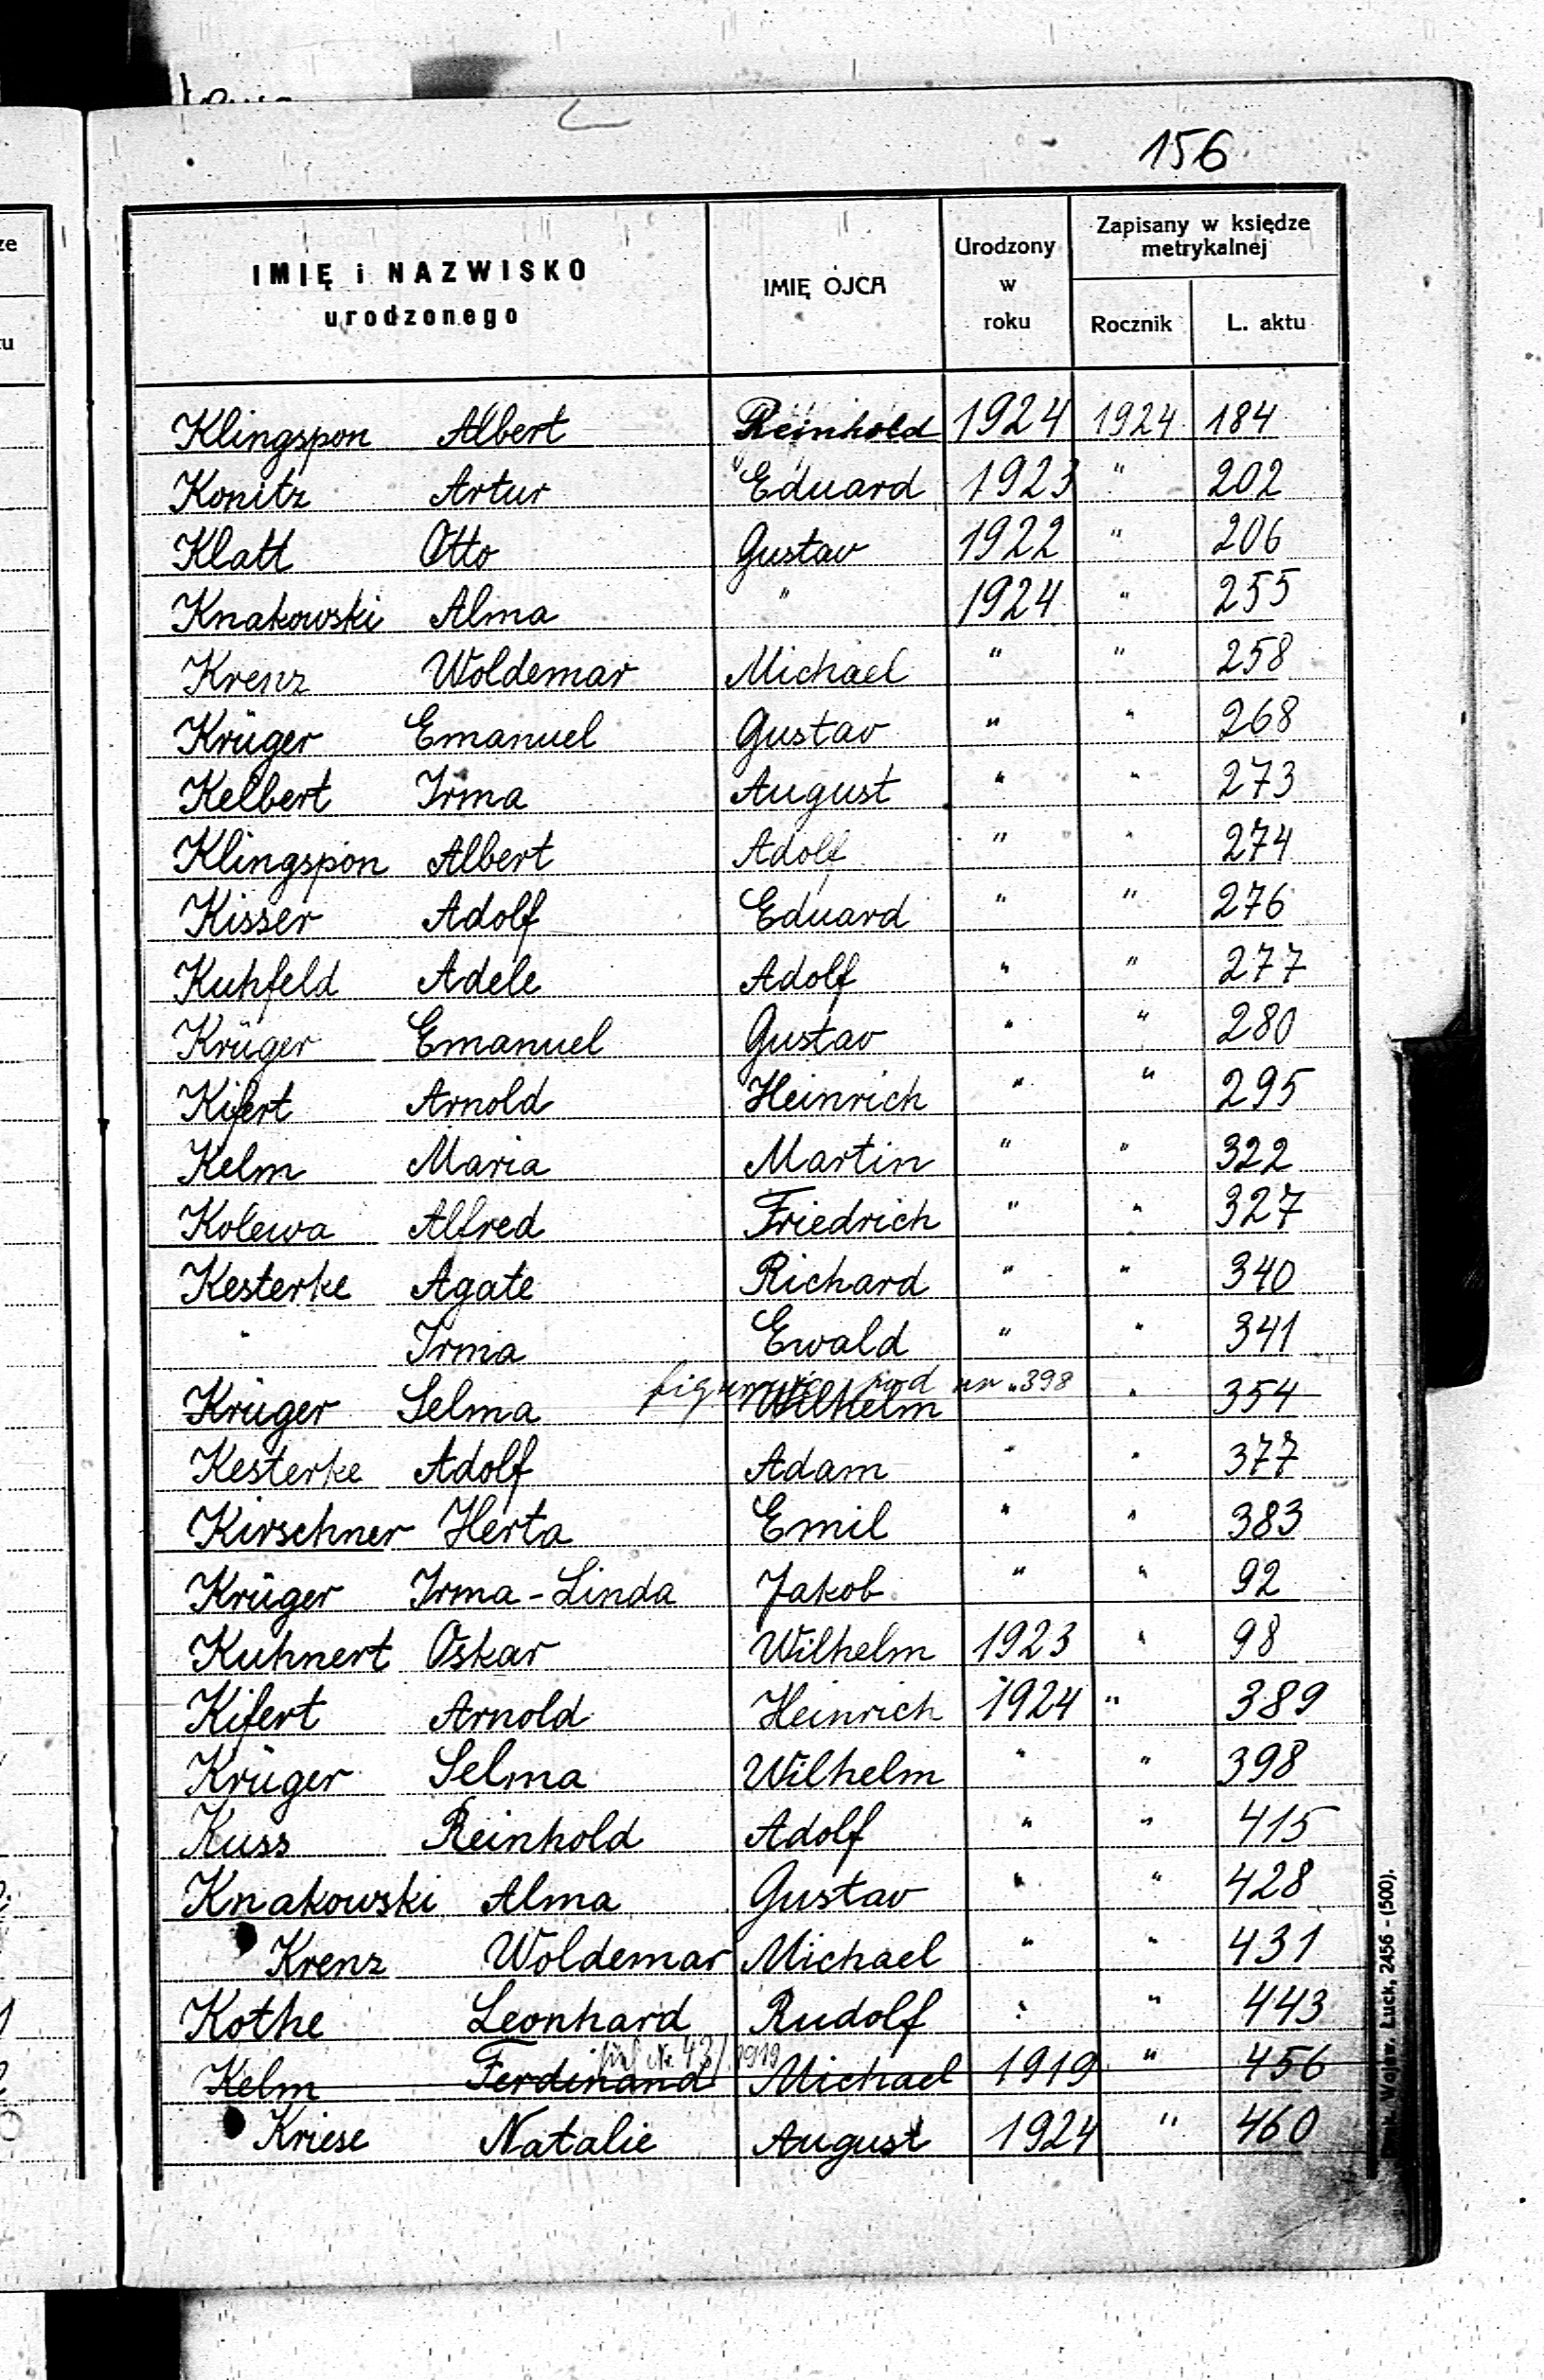 156
IMIĘ i NAZWISKO
urodzonego
IMIĘ OJCA
Urodzony
w
roku
Zapisany w księdze
metrykalnej
Rocznik
L. aktu
Klingspon Albert Reinhold 1924 1924 184
Konitz Artur Eduard 1923 " 202
Klatt Otto Gustav 1922 " 206
Knakowski Alma " 1924 " 255
Krenz Woldemar Michael " " 258
Krüger Emanuel Gustav " " 268
Kelbert Irma August " " 273
Klingspon Albert Adolf " " 274
Kisser Adolf Eduard " " 276
Kuhfeld Adele Adolf " " 277
Krüger Emanuel Gustav " " 280
Kifert Arnold Heinrich " " 295
Kelm Maria Martin " " 322
Kolewa Alfred Friedrich " " 327
Kesterke Agate Richard " " 340
" Irma Ewald " " 341
pod nr. 398
Krüger Selma Wilhelm " 354
Kesterke Adolf Adam " " 377
Kirschner Herta Emil " " 383
Krüger Irma-Linda Jakob " " 92
Kuhnert Oskar Wilhelm 1923 " 98
Kifert Arnold Heinrich 1924 " 389
Krüger Selma Wilhelm " " 398
Kuss Reinhold Adolf " " 415
Knakowski Alma Gustav " " 428
Krenz Woldemar Michael " " 431
Kothe Leonhard Rudolf " " 443
№ 43/1919
Kelm Ferdinand Michael 1919 " 456
Kriese Natalie August 1924 " 460
Łuck, 2456 – (500).